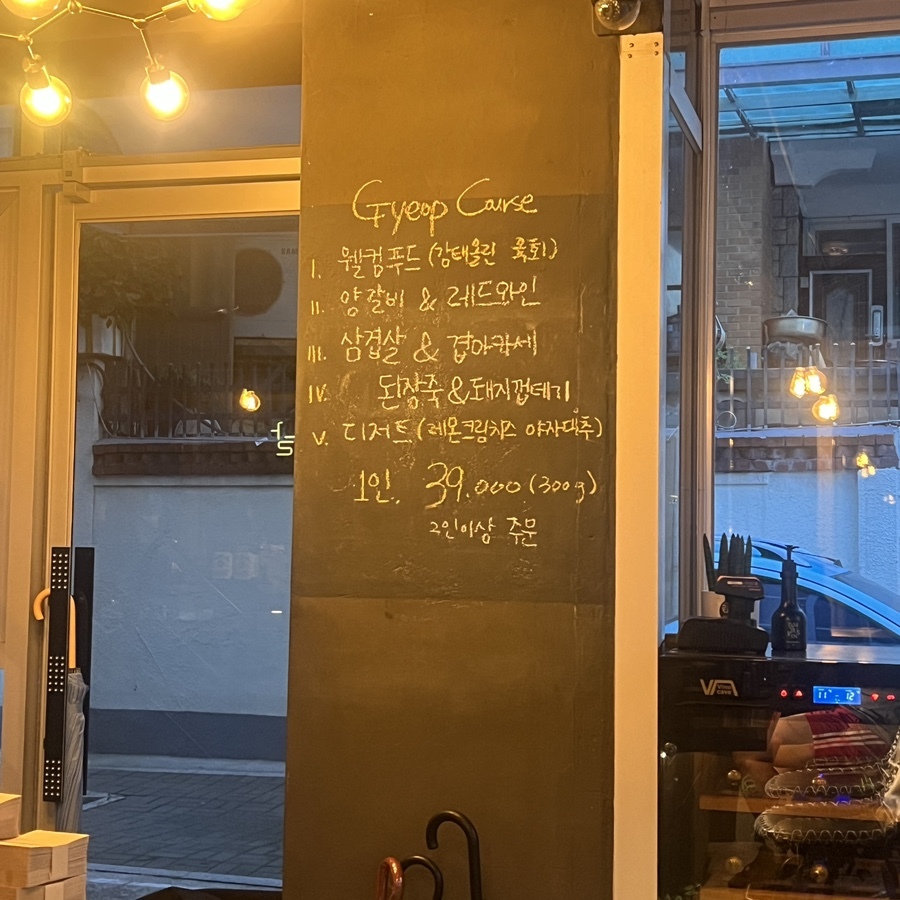 Gyeop Course
I. 웰컴푸드 (감태올린 육회)
II. 양갈비 & 레드와인
III. 삼겹살 & 겹아락세
IV. 된장죽 & 돼지껍데기
V. 디저트 (레몬크림치즈 야자대추)
1인. 39.000 (300g)
2인이상 주문